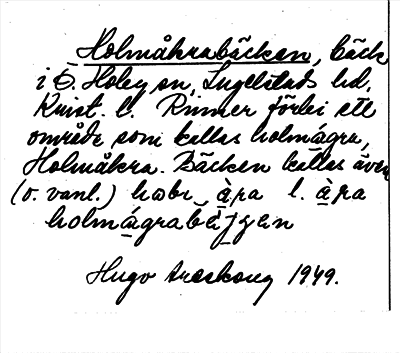 Holmåkrabäcken, bäck
i Ö. Hoby sn, Ingelstads hd,
Krist. l. Rinner förbi ett
område som kallas holmagra,
Holmåkra. Bäcken kallas även
(o. vanl.) hobr_apa l. apa
holmagrabäjzen
Hugo Areskoug 1949.